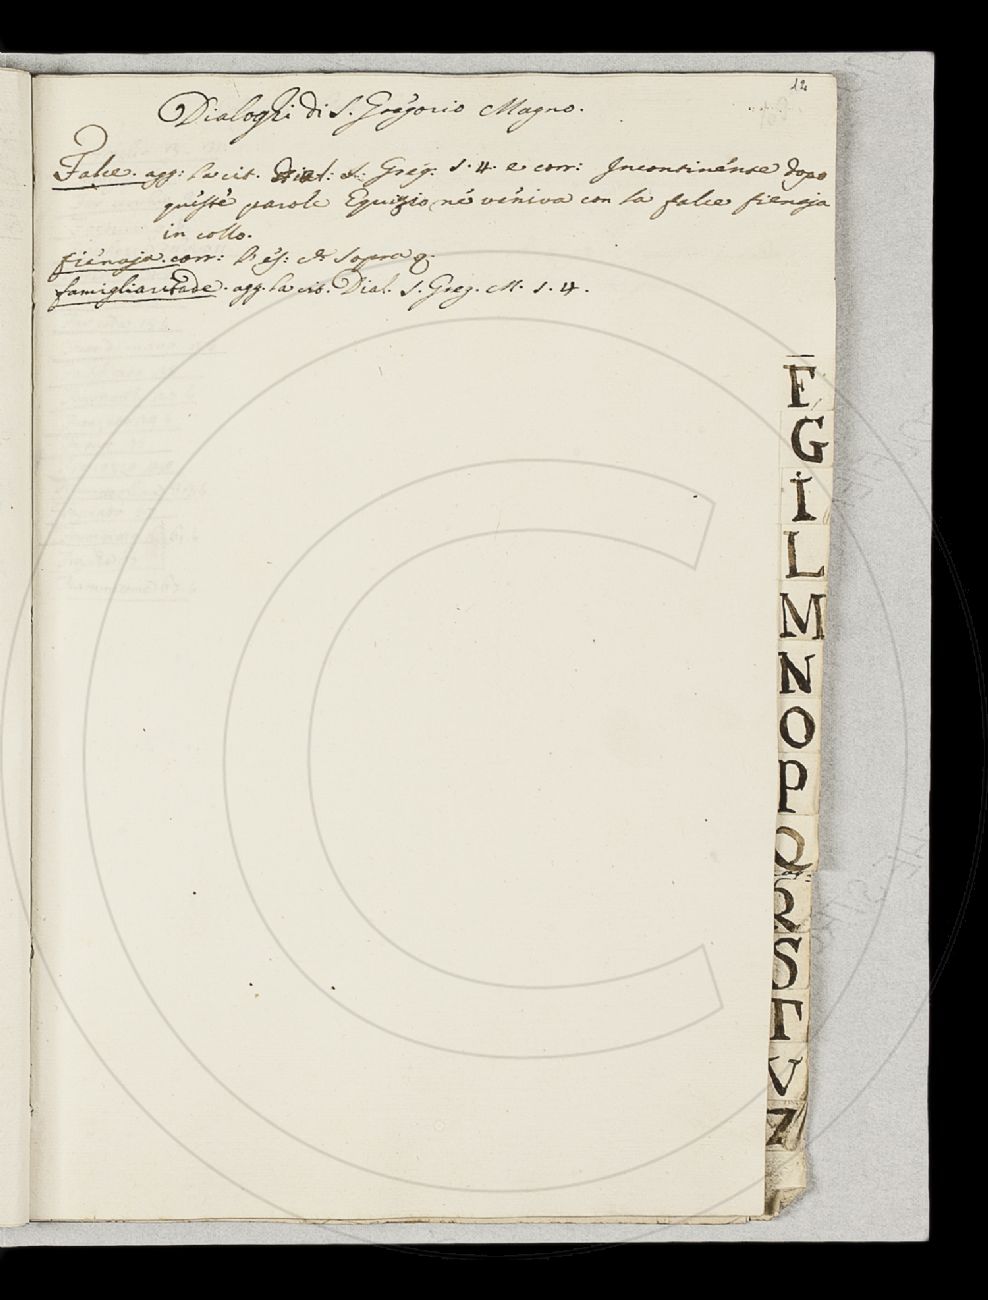 12
Dialoghi di S. Gregorio Magno.
Falce. agg: la cit. Dial: S. Greg. 1. 4. e corr: Incontinènte dopo
quèste parole Equizio né vèniva con la falce fienaja
in collo.
fienaja. corr: l'es: di sopra
famigliaritade. agg. la cit. Dial. S. Greg. M. 1. 4.
F
G
I
L
M
N
O
P
Q
R
S
T
V
Z